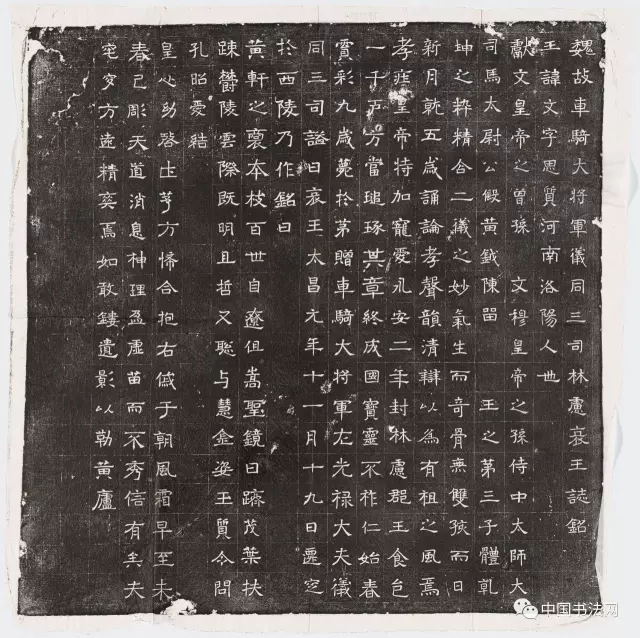 魏故車騎大將軍儀同三司林慮哀王誌銘
王諱文字思質河南洛陽人也
獻文皇帝之曾孫 文穆皇帝之孫侍中太師大
司馬太尉公假黃鉞陳留 王之第三子體乹
坤之粹精合二儀之妙氣生而奇骨無雙孩而日
新月就五歲誦論孝聲韻清辯以為有祖之風焉
孝莊皇帝特加寵愛永安二年封林慮郡王食邑
一千戶方當瑳琢其章終成國寶靈不祚仁始春
賓彩九歲薨於第贈車騎大將軍左光祿大夫儀
同三司謚曰哀王太昌元年十一月十九日遷窆
於西陵乃作銘曰
黃軒之裏本枝百世自遼伹嵩聖鏡日躋茂葉扶
踈欝陵雲際既明且哲又聡与慧金姿玉質令問
孔昭愛結
皇心幼啓土茅方懷合抱右戚于朝風霜早至未
春已彫天道消息神理盈虛苗而不秀信有矣夫
宅穸方遠精奕焉如敢鏤遺影以勒黃廬
中国书法网